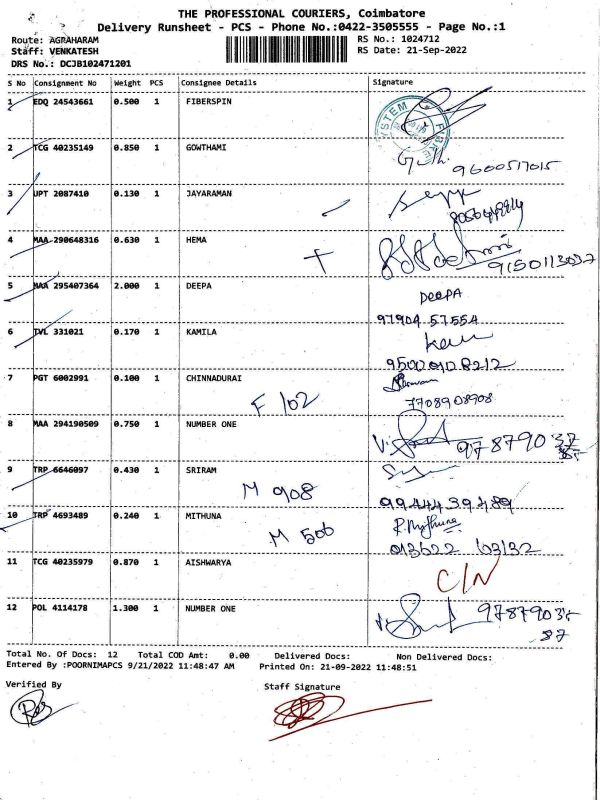 THE PROFESSIONAL COURIERS, Coimbatore
Delivery Runsheet - PCS - Phone No.:0422-3505555 - Page No.:1
Route: AGRAHARAM RS No.: 1024712
Staff: VENKATESH RS Date: 21-Sep-2022
DRS No.: DCJB102471201
S No Consignment No Weight PCS Consignee Details Signature
1 EDQ 24543661 0.500 1 FIBERSPIN
2 TCG 40235149 0.850 1 GOWTHAMI
9600517015
3 UPT 2087410 0.130 1 JAYARAMAN
4 MAA 290648316 0.630 1 HEMA
9150113037
5 MAA 295407364 2.000 1 DEEPA DEEPA
97904 57554
6 TVL 331021 0.170 1 KAMILA
9500408212
7 PGT 6002991 0.100 1 CHINNADURAI
F 102 7708908908
8 MAA 294190509 0.750 1 NUMBER ONE
9787903787
9 TRP 6646097 0.430 1 SRIRAM
M 908 9944439489
10 TRP 4693489 0.240 1 MITHUNA R. Mythuna
M 506
11 TCG 40235979 0.870 1 AISHWARYA
C/N
12 POL 4114178 1.300 1 NUMBER ONE 97879037
87
Total No. Of Docs: 12 Total COD Amt: 0.00 Delivered Docs: Non Delivered Docs:
Entered By :POORNIMAPCS 9/21/2022 11:48:47 AM Printed On: 21-09-2022 11:48:51
Verified By Staff Signature